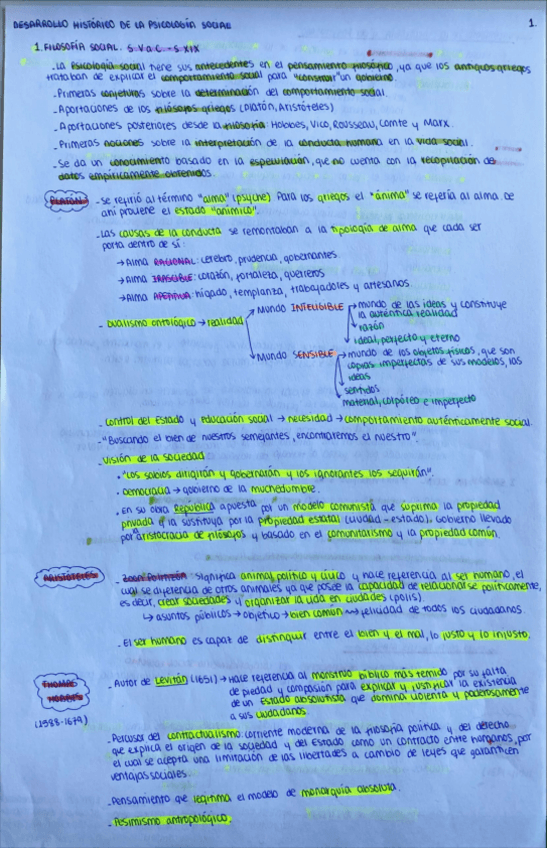 DESARROLLO HISTÓRICO DE LA PSICOLOGÍA SOCIAL
1.
1. FILOSOFÍA SOCIAL. S V a C - S XIX
- La psicología social tiene sus antecedentes en el pensamiento filosófico, ya que los antiguos griegos
trataban de explicar el comportamiento social para "construir" un gobierno.
- Primeras conjeturas sobre la determinación del comportamiento social.
- Aportaciones de los filósofos griegos (Platón, Aristóteles)
- Aportaciones posteriores desde la filosofía: Hobbes, Vico, Rousseau, Comte y Marx.
- Primeras nociones sobre la interpretación de la conducta humana en la vida social.
- Se da un conocimiento basado en la especulación, que no cuenta con la recopilación de
datos empíricamente obtenidos.
PLATÓN
- Se refirió al término "alma" (psyche) Para los griegos el "ánima" se refería al alma. De
ahí proviene el estado "anímico".
- Las causas de la conducta se remontaban a la tipología de alma que cada ser
porta dentro de sí:
→ Alma RACIONAL: cerebro, prudencia, gobernantes
→ Alma IRASCIBLE: corazón, fortaleza, guerreros
→ Alma APETITIVA: hígado, templanza, trabajadores y artesanos
- Dualismo ontológico → realidad
Mundo INTELIGIBLE → mundo de las ideas y constituye
la auténtica realidad
razón
ideal, perfecto y eterno
Mundo SENSIBLE → mundo de los objetos físicos, que son
copias imperfectas de sus modelos, las
ideas
sentidos
material, corpóreo e imperfecto
- Control del Estado y educación social → necesidad → comportamiento auténticamente social.
- "Buscando el bien de nuestros semejantes, encontraremos el nuestro".
- Visión de la sociedad
• "Los sabios dirigirán y gobernarán y los ignorantes los seguirán".
• Democracia → gobierno de la muchedumbre.
• En su obra República apuesta por un modelo comunista que suprima la propiedad
privada y la sustituya por la propiedad estatal (ciudad-estado). Gobierno llevado
por aristocracia de filósofos y basado en el comunitarismo y la propiedad común.
ARISTÓTELES
- Zoon Politikon: significa animal político y cívico y hace referencia al ser humano, el
cual se diferencia de otros animales ya que posee la capacidad de relacionarse políticamente,
es decir, crear sociedades y organizar la vida en ciudades (polis).
↳ asuntos públicos → objetivo → bien común ⇝ felicidad de todos los ciudadanos.
- El ser humano es capaz de distinguir entre el bien y el mal, lo justo y lo injusto.
THOMAS
HOBBES
(1588-1679)
- Autor de Leviatán (1651) → Hace referencia al monstruo bíblico más temido por su falta
de piedad y compasión para explicar y justificar la existencia
de un Estado absolutista que domina violenta y poderosamente
a sus ciudadanos
- Percusor del contractualismo: corriente moderna de la filosofía política y del derecho
que explica el origen de la sociedad y del Estado como un contracto entre humanos, por
el cual se acepta una limitación de las libertades a cambio de leyes que garanticen
ventajas sociales.
- Pensamiento que legitima el modelo de monarquía absoluta.
- Pesimismo antropológico.